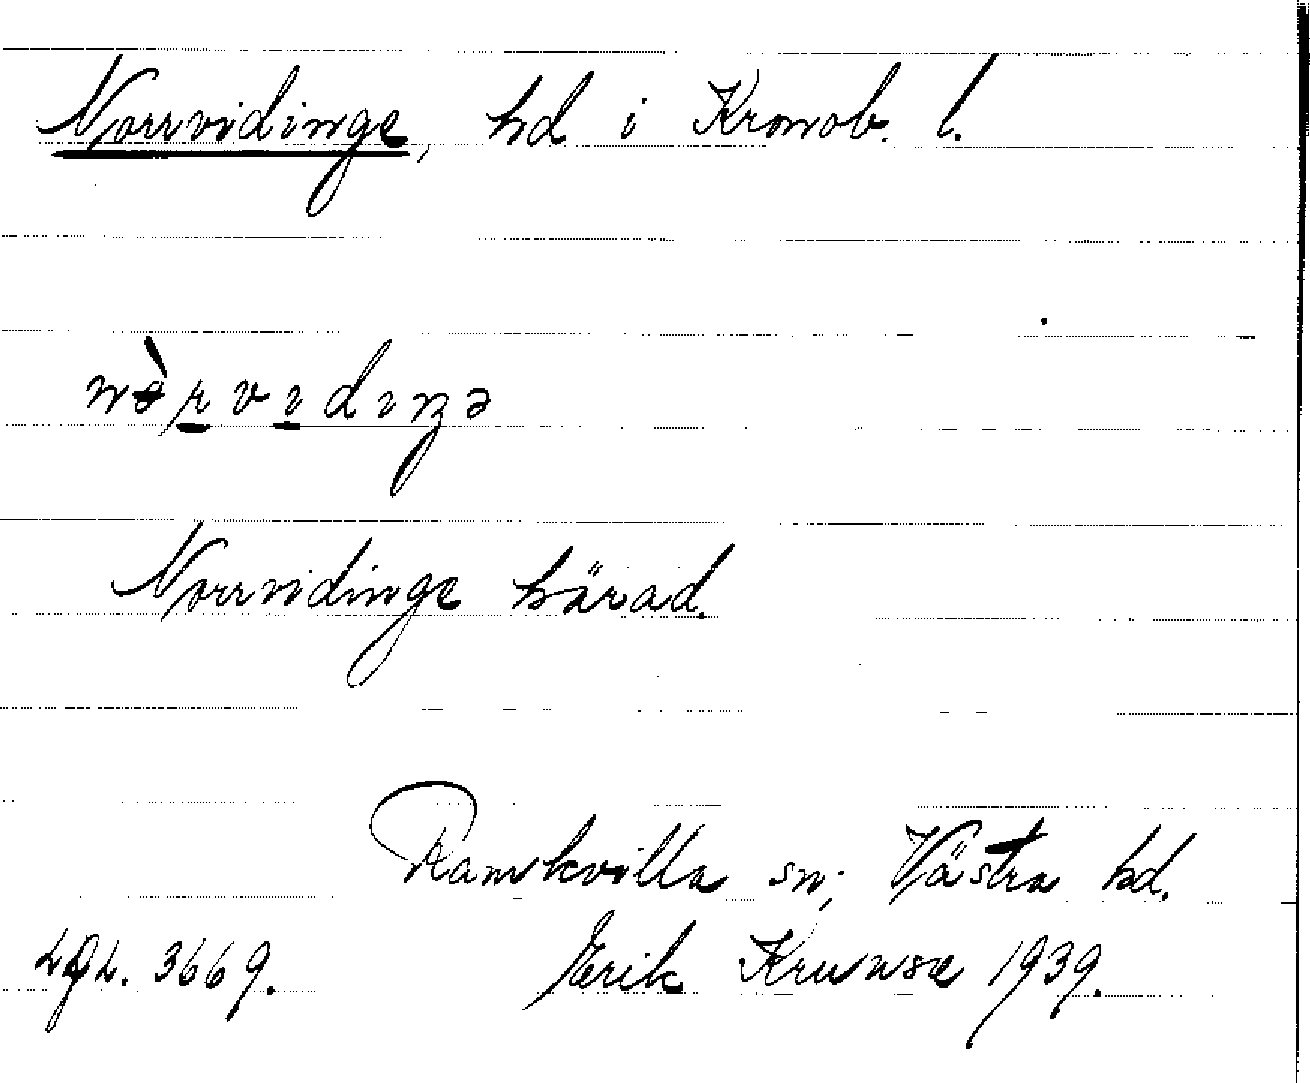 Norrvidinge, hd i Kronob. l.
nòrvidiŋə
Norrvidinge härad.
Ramkvilla sn; Västra hd.
Erik Kruuse 1939.